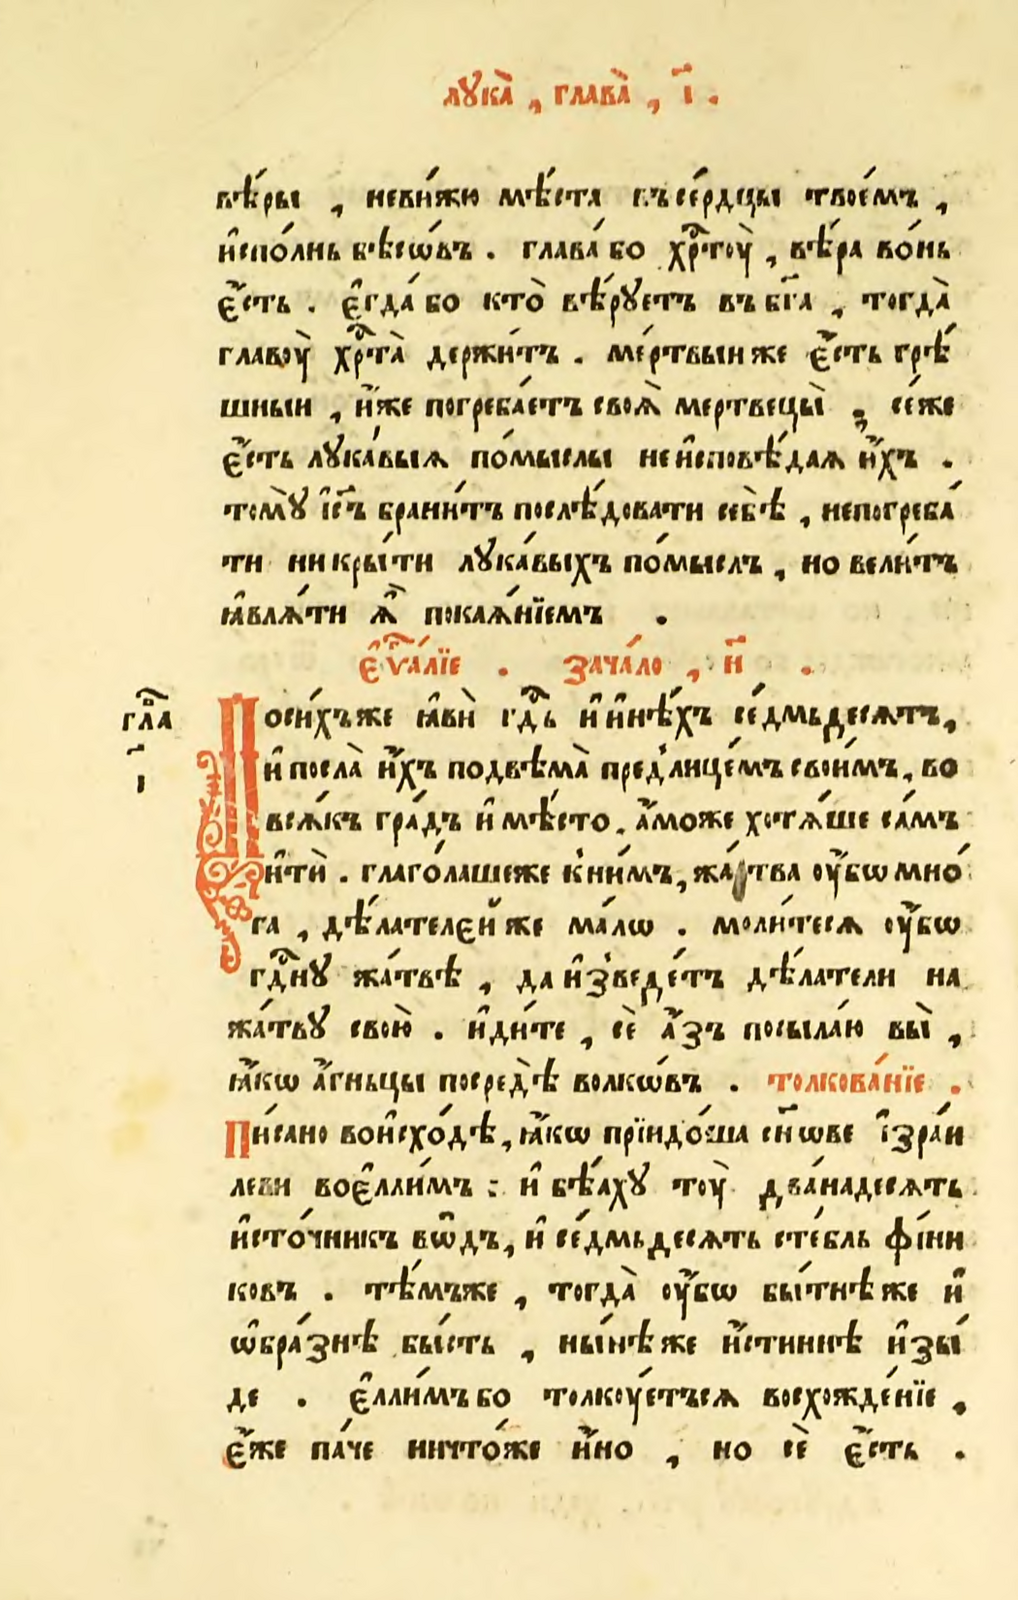 лꙋка̀ , глава̀ , і҃ .
вѣ́ры , неви́жю мѣ́ста въсе́рдцы твое́мъ ,
и҆спо́лнь бѣсѡ́въ . глава́ бо хрⷭ҇тоу̀ , вѣ́ра во́нь
є҆́сть . є҆гда́ бо кто̀ вѣ́рꙋетъ въ бг҃а , тогда̀
главоу̀ хрⷭ҇та̀ держи́тъ . ме́ртвыи же є҆́сть грѣ́
шныи , и҆́же погреба́етъ своѧ̀ мертвецы̀ , се́же
є҆́сть лꙋка́выѧ по́мыслы не и҆сповѣ́даѧ и҆́хъ .
томꙋ̀ і҆с҃ъ брани́тъ послѣ́довати себѣ̀ , непогреба́
ти ни кры́ти лꙋка́выхъ по́мыслъ , но вели́тъ
ꙗ҆влѧ́ти ѧ҆̀ покаѧ́нїемъ .
є҆ѵⷢ҇а́лїе . зача́ло , н҃ .
гла҃
і҃
Поси́хъже ꙗ҆вѝ гдⷭ҇ь и҆ и҆нѣ́хъ се́дмьдесѧтъ,
и҆ посла̀ и҆́хъ подвѣма̀ пред̾лице́мъ свои́мъ, во
всѧ́къ гра́дъ и҆ мѣ́сто . а҆́може хотѧ́ше са́мъ
и҆тѝ . глаго́лашеже к̾ни́мъ, жа́тва оу҆́бѡ мно́
га , дѣ́лателєй же ма́лѡ . моли́тесѧ оу҆́бѡ
гдⷭ҇нꙋ жа́твѣ , да и҆зведе́тъ дѣ́латели на
жа́твꙋ свою̀ . и҆ди́те , сѐ а҆́зъ посыла́ю вы̀ ,
ꙗ҆́кѡ а҆́гньцы посредѣ̀ волкѡ́въ . толкова́нїе .
Пи́сано воисхо́дѣ, ꙗ҆́кѡ прїидо́ша сн҃ове і҆зра́и
леви воє҆лли́мъ : и҆ бѣ́ахꙋ тоу̀ двана́десѧть
и҆сто́чникъ вѡ́дъ, и҆ се́дмьдесѧть сте́бль фі́ни
ковъ . тѣ́мъже , тогда̀ оу҆́бѡ бы́тнѣ же и҆
ѡ҆бра́знѣ бы́сть , ны́нѣ же и҆́стиннѣ и҆зы́
де . є҆лли́мъ бо толкоу́етъсѧ восхожде́нїе ,
є҆́же па́че ничто́же и҆́но , но сѐ є҆́сть .